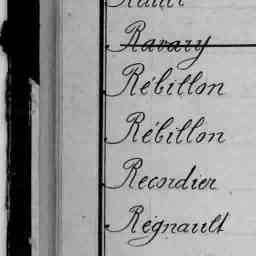 Ravary
Rébillon
Rébillon
Recordier
Régnault